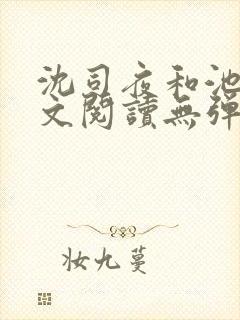 沈司夜和池
文閱讀無彈
妝九蔓